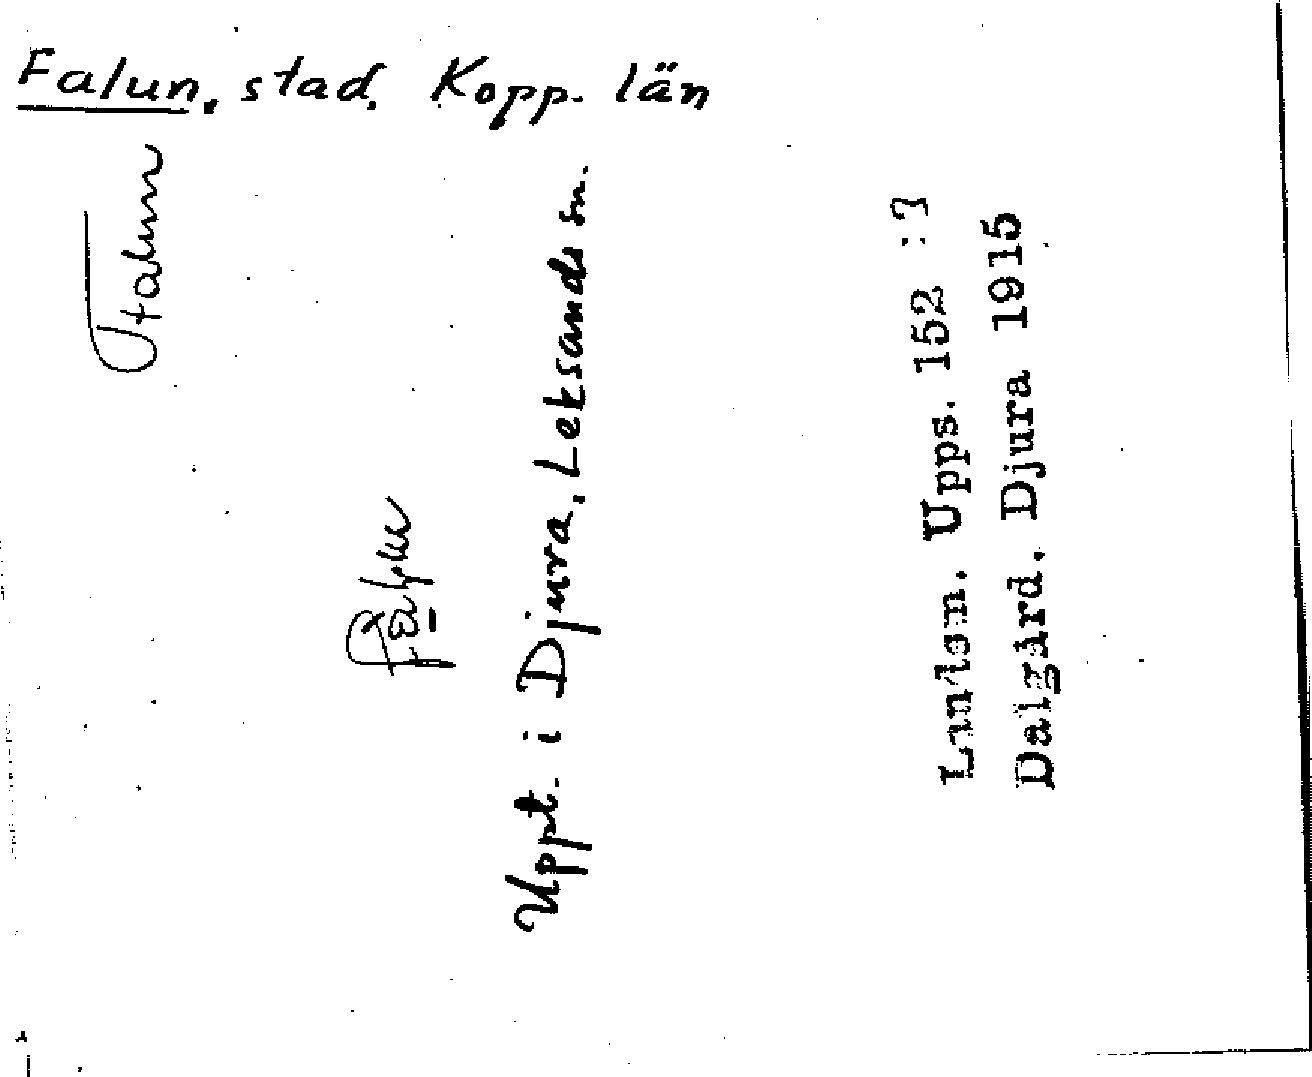 Falun, stad, Kopp. län
Falun
Uppt. i Djura, Leksands sn.
Landsm. Upps. 152 :3
Dalgård. Djura 1915